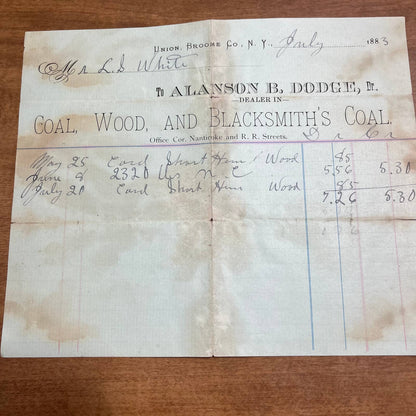 Union, Broome Co., N. Y., July 1883
Mr L. D White
To ALANSON B. DODGE, Dr.
DEALER IN
COAL, WOOD, AND BLACKSMITH'S COAL.
Office Cor. Nanticoke and R. R. Streets.
Dr Cr
May 25 Cord Short Hem Wood .85
June 8 2320 lbs N. C 5.56 5.30
July 20 Cord Short Hem Wood .85
7.26 5.30